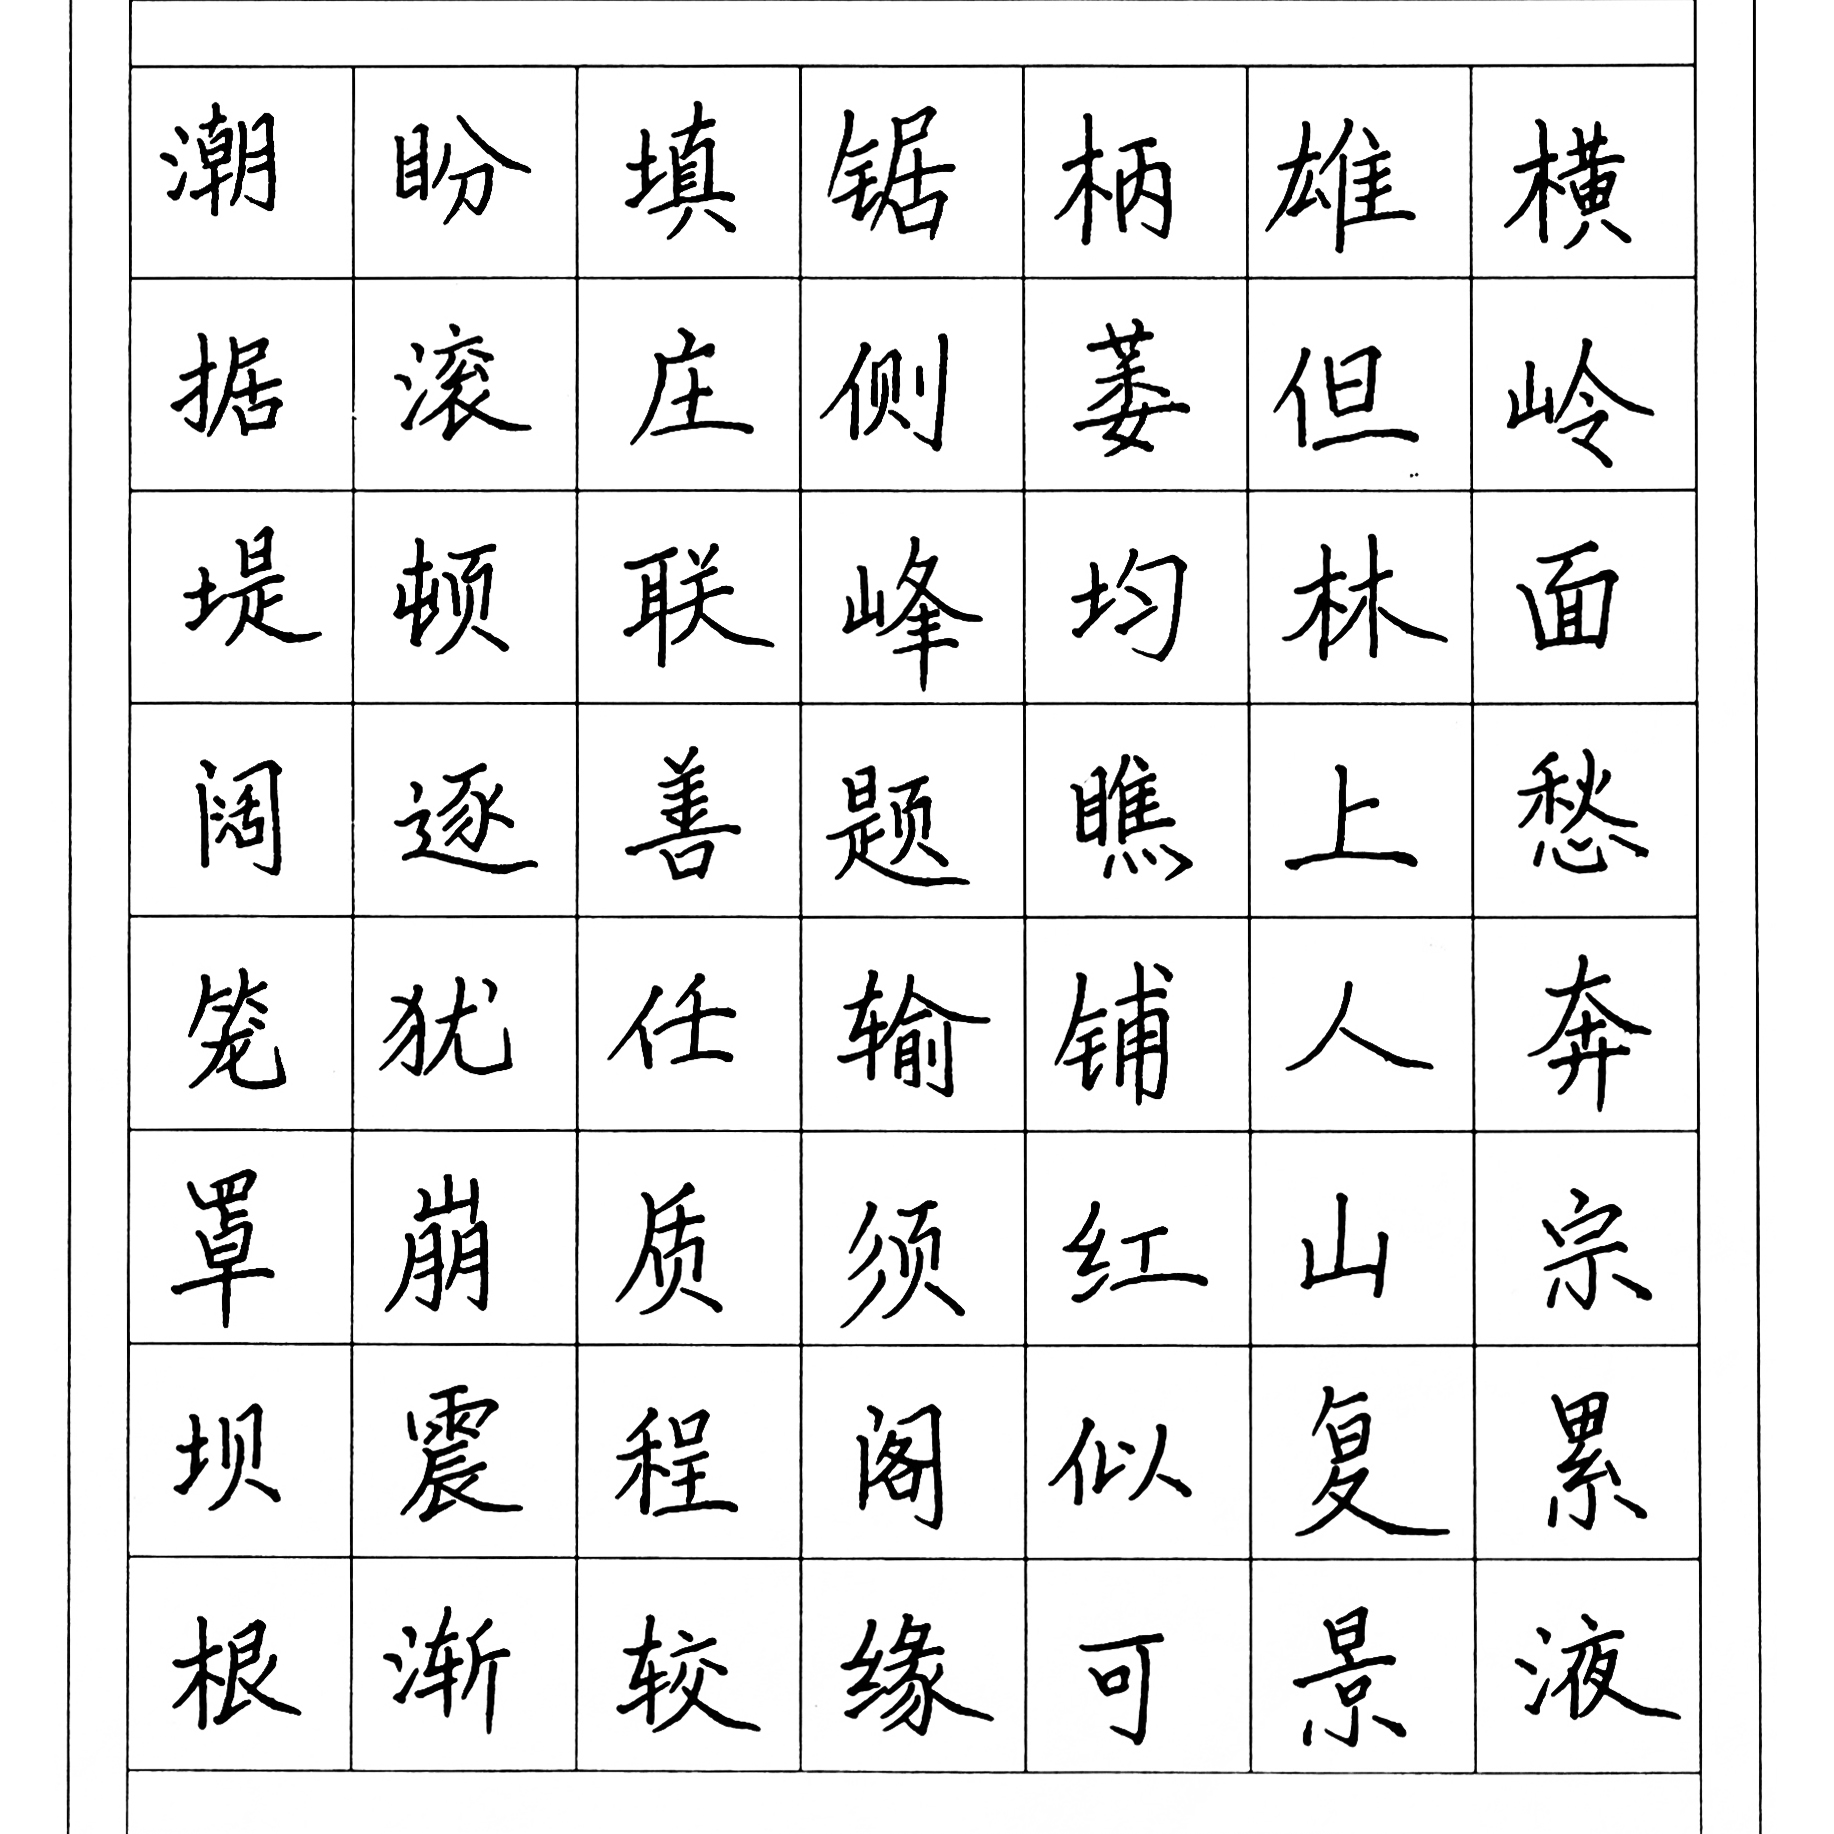 潮据堤阔笼罩坝根
盼滚顿逐犹崩震渐
填庄联善任质程较
锯侧峰题输须阁缘
柄蒌均瞧铺红似可
雄但林上人山复景
横岭面愁奔宗累液